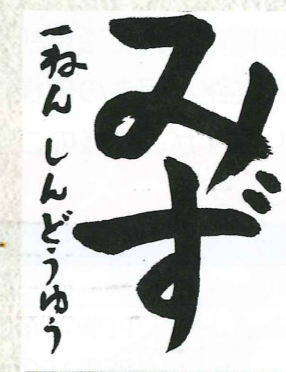 みず
一ねん しんどうゆう